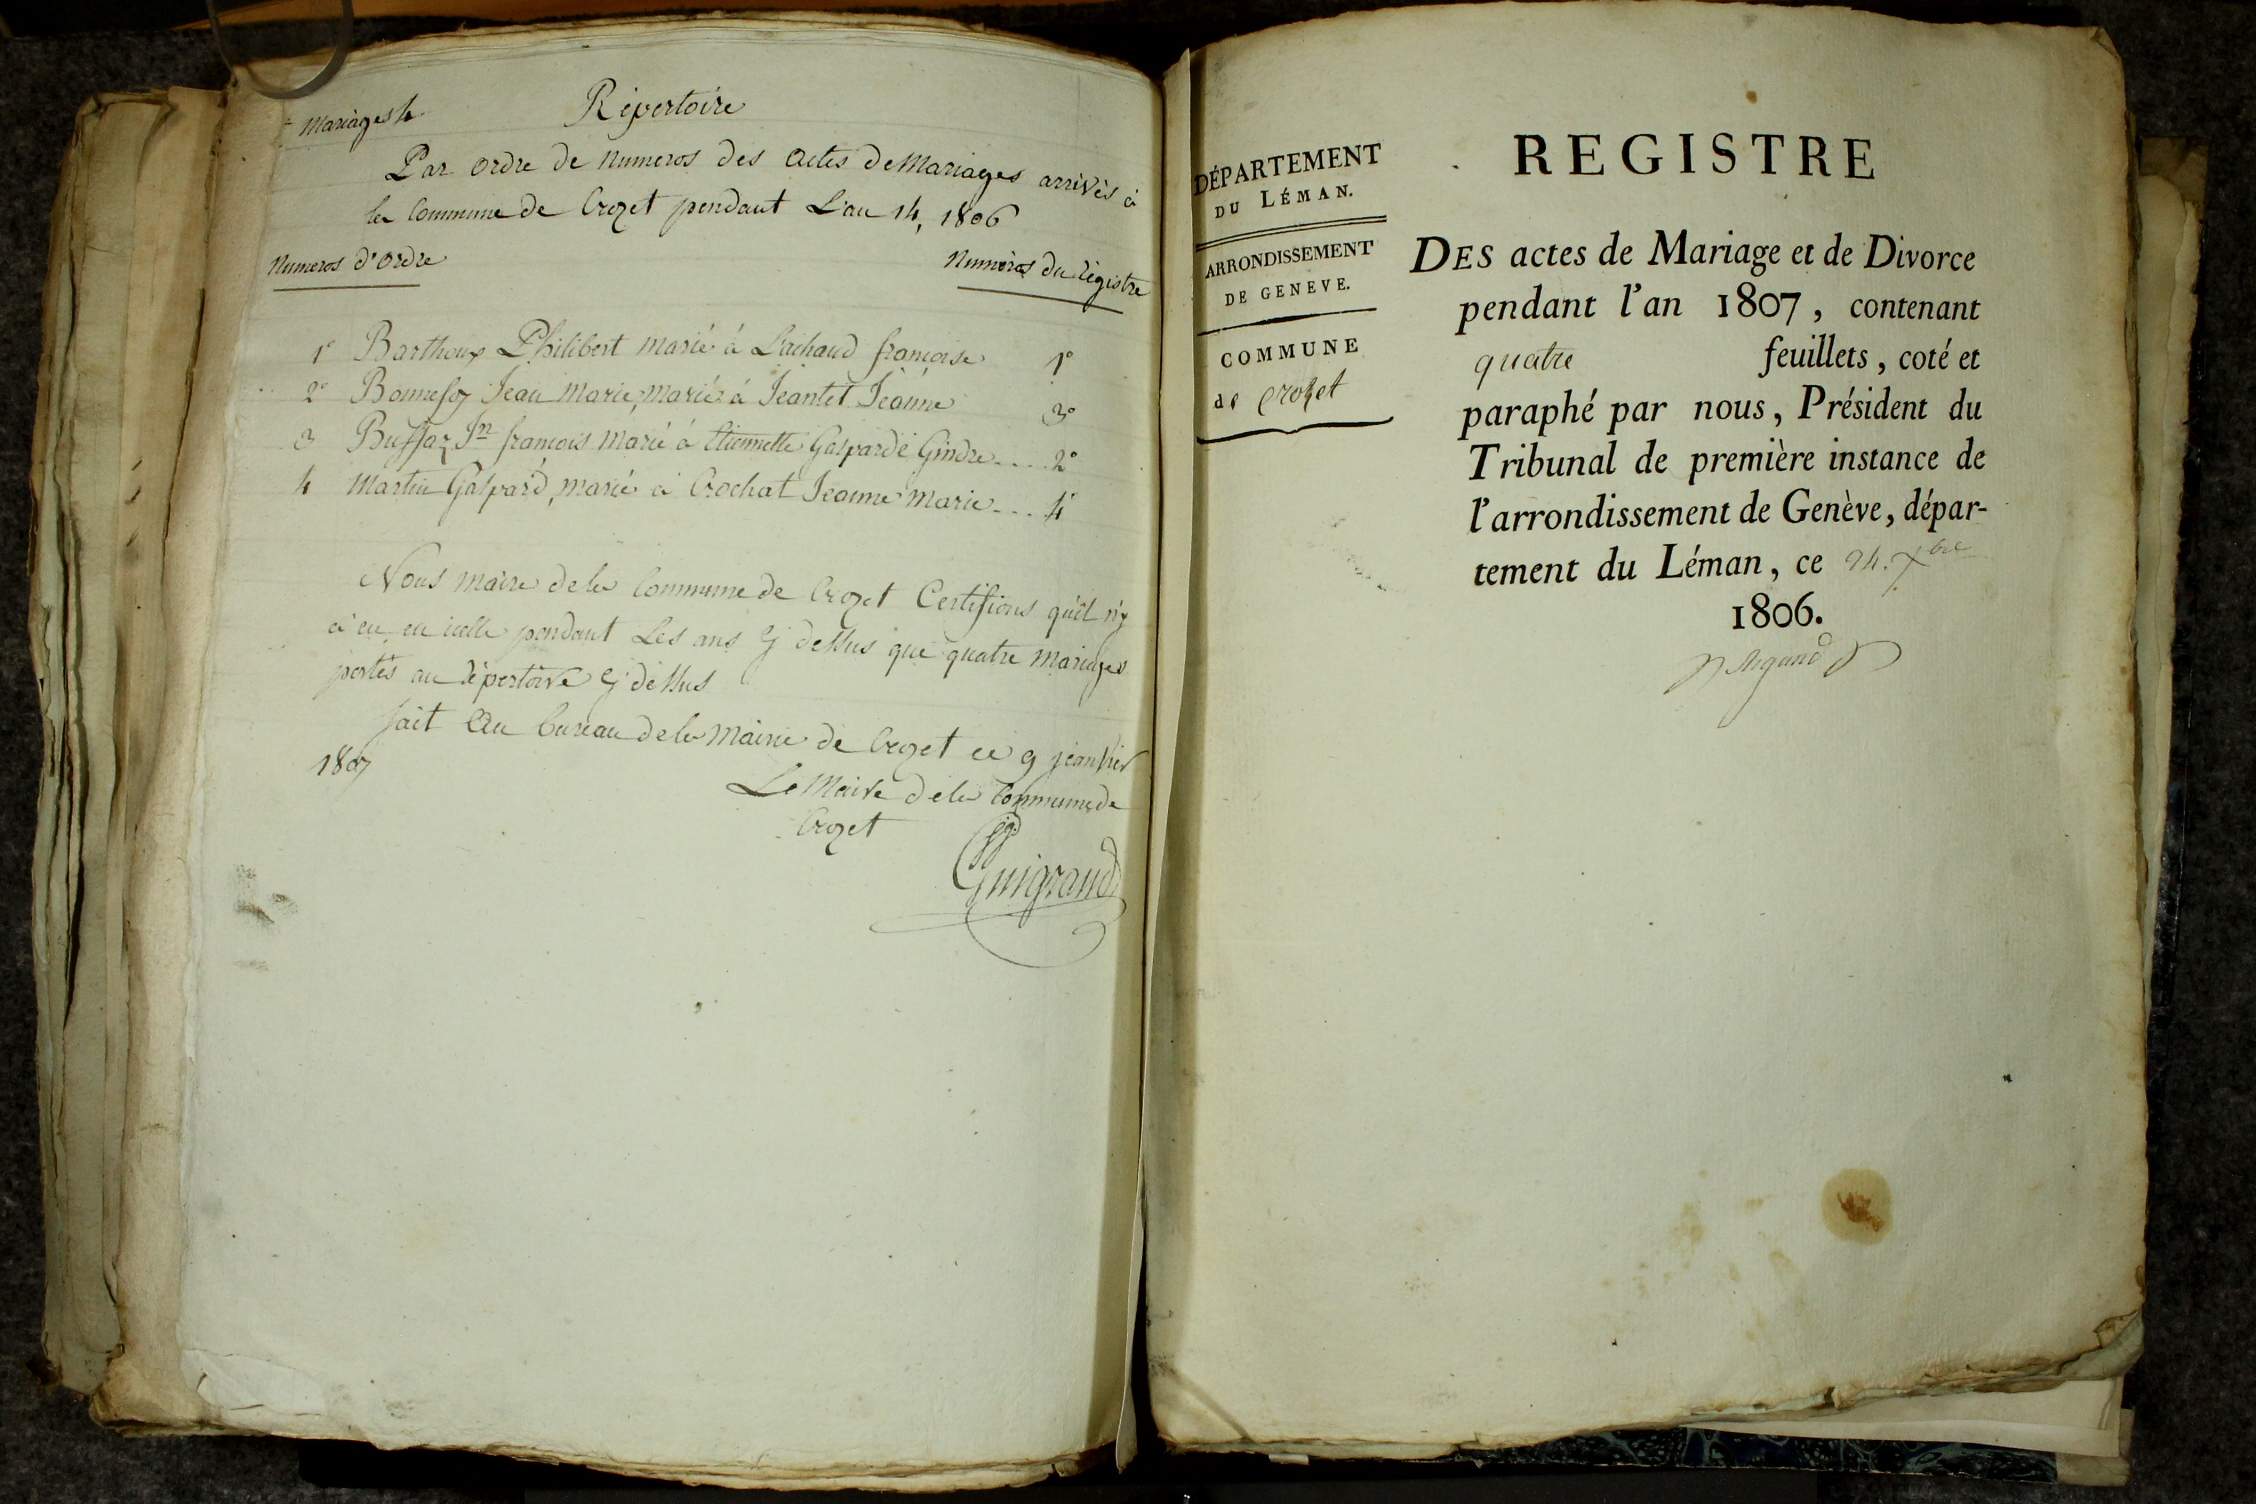 Mariages 4
Répertoire
Par ordre de Numeros des actes de Mariages arrivés à
la Commune de Crozet pendant L'an 14, 1806
Numeros d'Ordre
Numéros du Régistre
1° Barthoux Philibert marié à Lachaud françoise 1°
2° Bonnefoy Jean Marie, marié à Jeantet Jeanne 3°
3 Buffaz Jn françois marié à Etiennette Gasparde Gindre .... 2°
4 Martin Gaspard, marié à Crochat Jeanne Marie ... 4°
Nous maire de la Commune de Crozet Certifions qu'il n'y
à eu en icelle pendant Les ans cy dessus que quatre Mariages
portés au répertoire cy dessus
fait Au bureau de la Mairie de Crozet ce 9 jeanvier
1807
Le Maire de la Commune de
Crozet
Guigrand
DÉPARTEMENT
DU LÉMAN.
ARRONDISSEMENT
DE GENEVE.
COMMUNE
de Crozet
REGISTRE
DES actes de Mariage et de Divorce
pendant l'an 1807, contenant
quatre feuillets, coté et
paraphé par nous, Président du
Tribunal de première instance de
l'arrondissement de Genève, dépar-
tement du Léman, ce 24. Xbre
1806.
Argand